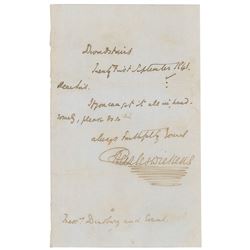 Broadstairs
Twenty First September 1841.
Dear Sir.
If you can get it all in
please do so
always Faithfully Yours
Charles Dickens
Messrs. Bradbury and Evans